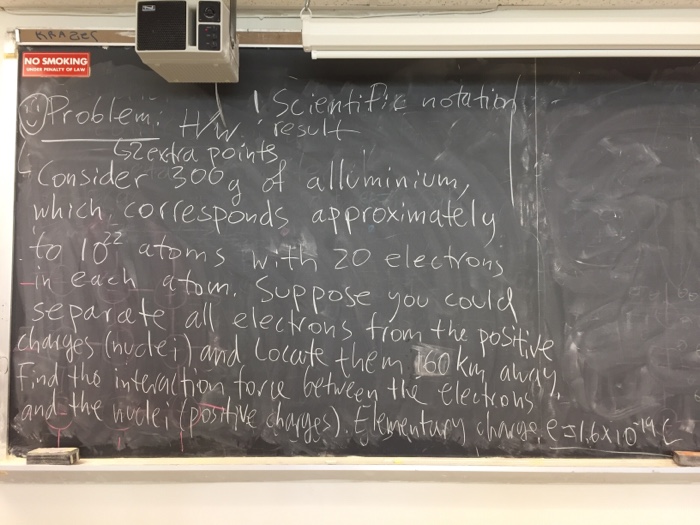 KRAZER
NO SMOKING
UNDER PENALTY OF LAW
Problem: H/W ! Scientific notation
result
2 extra points
Consider 300g of alluminium,
which corresponds approximately
to 10²² atoms with 20 electrons
in each atom. Suppose you could
separate all electrons from the positive
charges (nuclei) and locate them 160 km away.
Find the interaction force between the electrons
and the nuclei (positive charges). Elementary charge e=1.6×10⁻¹⁹ C